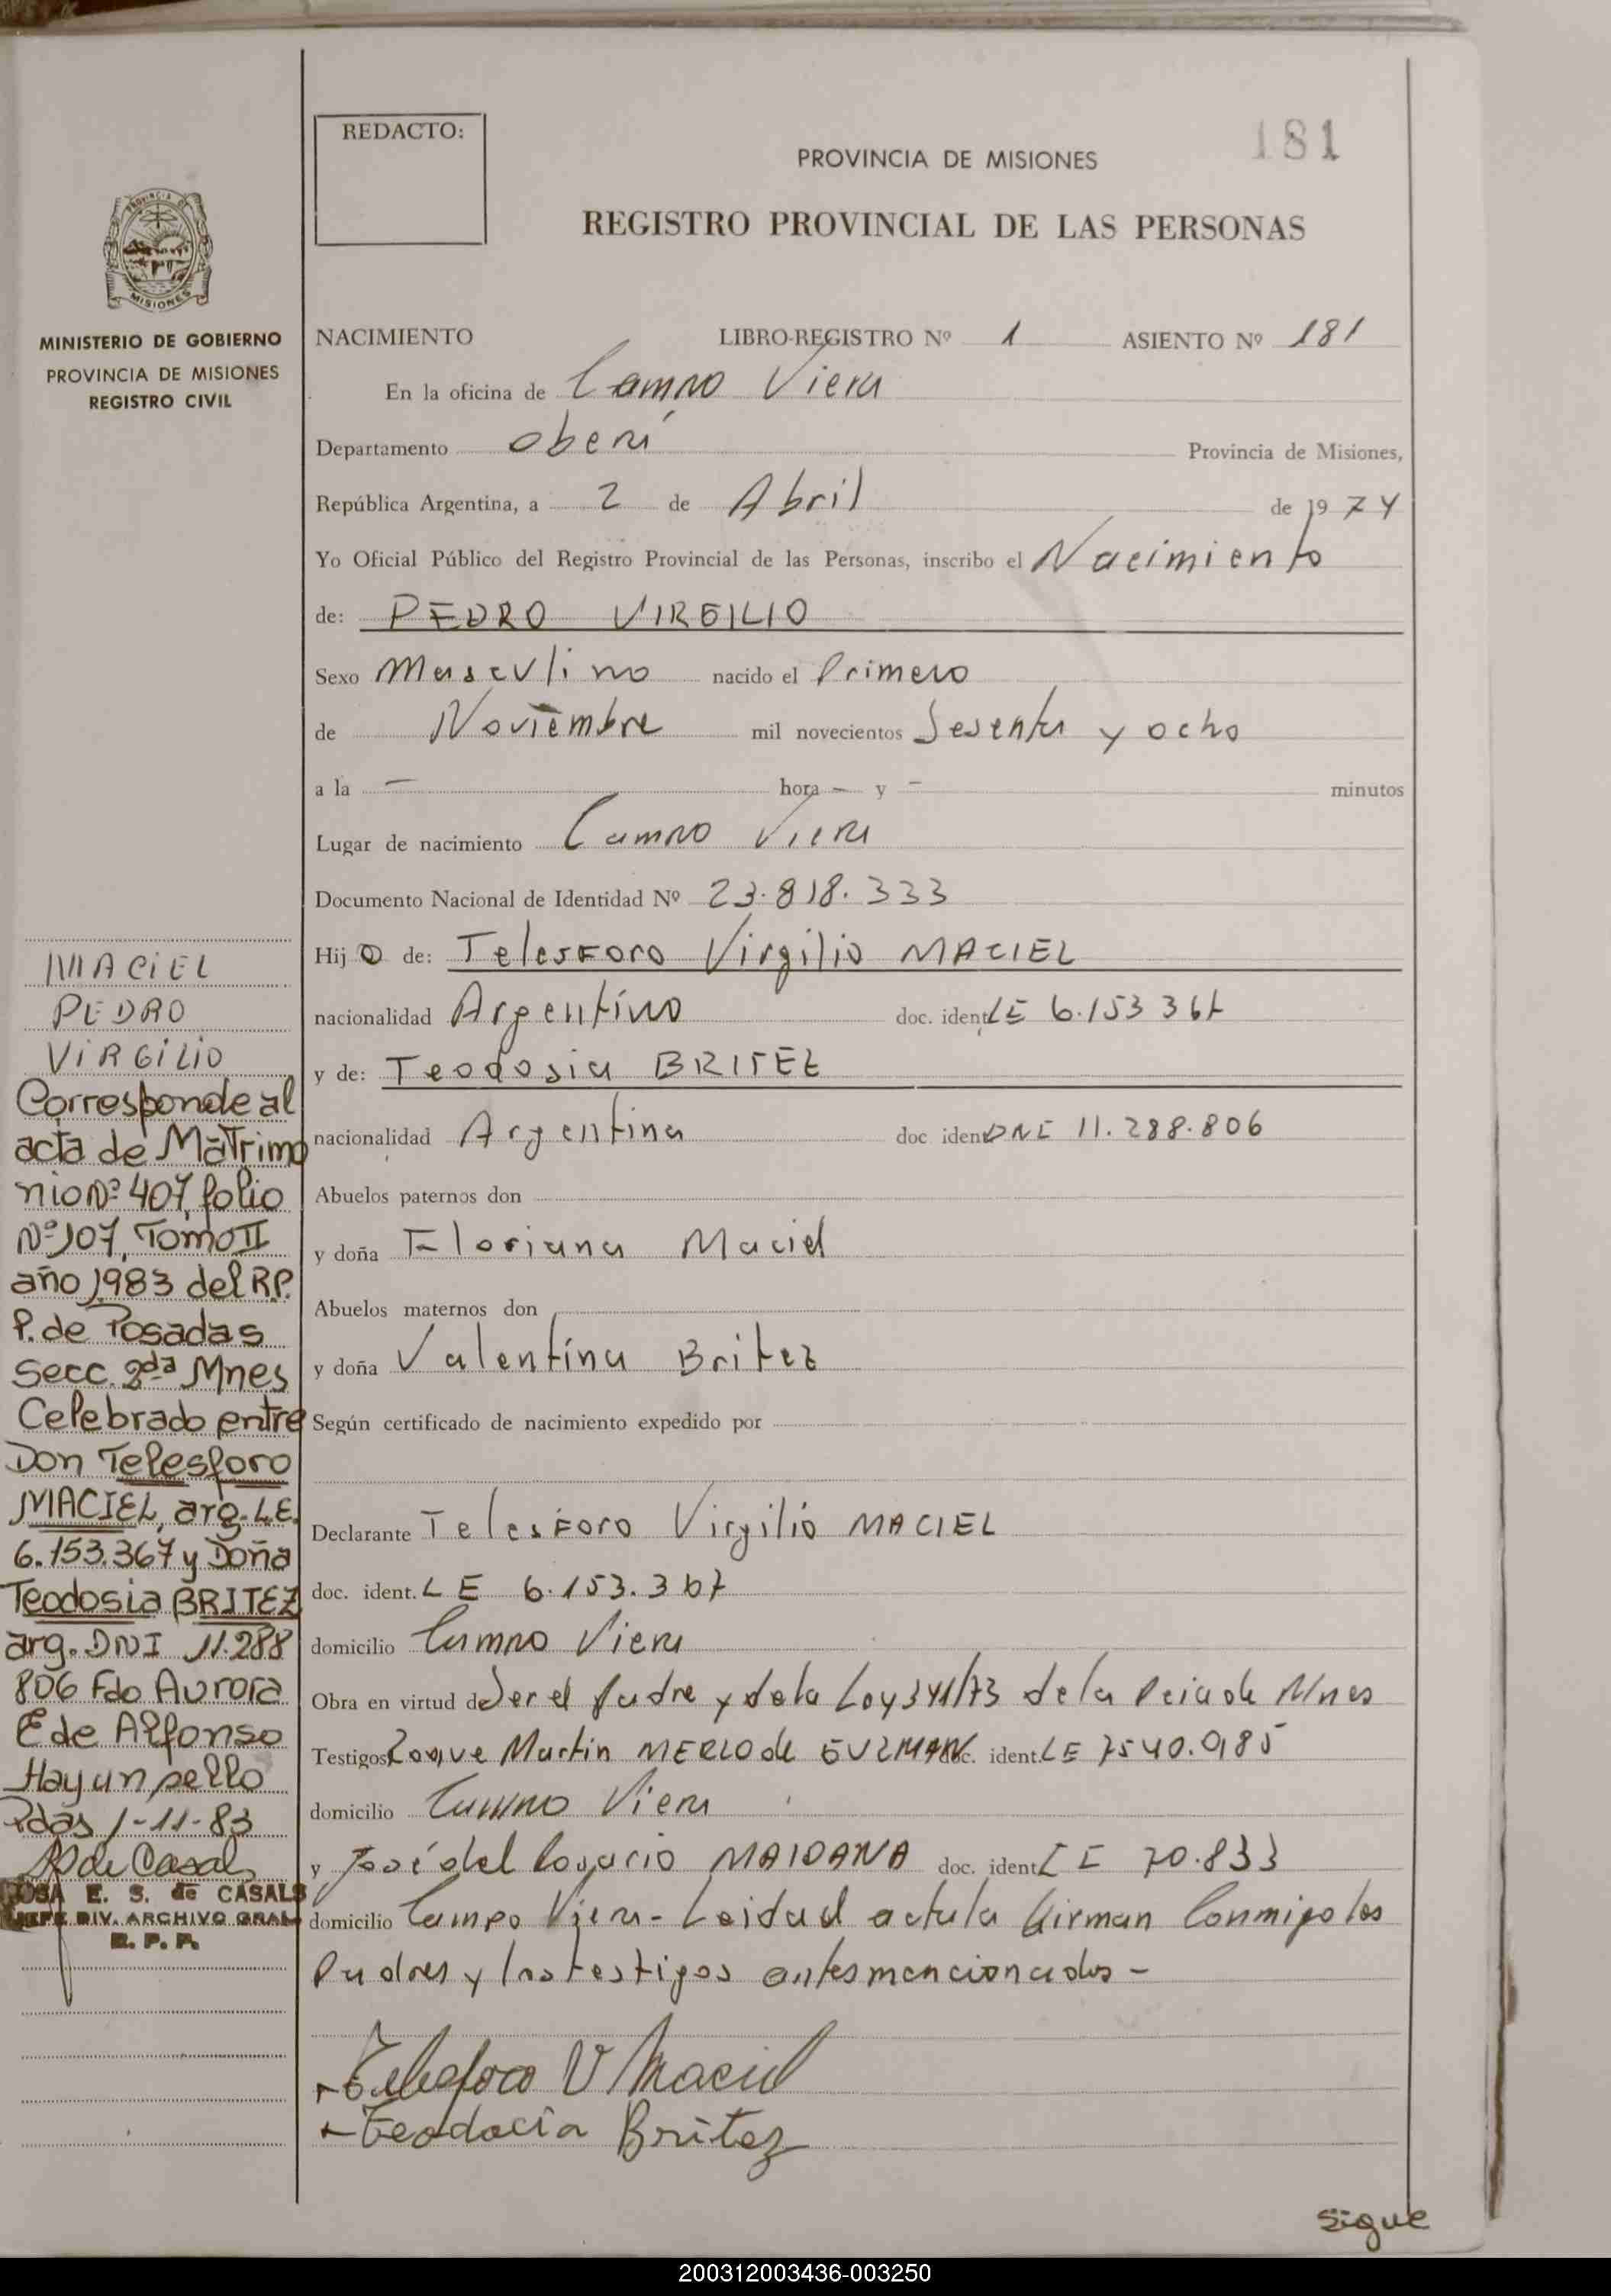 181
REDACTO:
PROVINCIA DE MISIONES
REGISTRO PROVINCIAL DE LAS PERSONAS
PROVINCIA DE
MISIONES
MINISTERIO DE GOBIERNO
PROVINCIA DE MISIONES
REGISTRO CIVIL
NACIMIENTO LIBRO-REGISTRO Nº 1 ASIENTO Nº 181
En la oficina de Campo Viera
Departamento Oberá Provincia de Misiones,
República Argentina, a 2 de Abril de 1974
Yo Oficial Público del Registro Provincial de las Personas, inscribo el Nacimiento
de: PEDRO VIRGILIO
Sexo Masculino nacido el Primero
de Noviembre mil novecientos Sesenta y ocho
a la — hora — y — minutos
Lugar de nacimiento Campo Viera
Documento Nacional de Identidad Nº 23.818.333
Hijo de: Telesforo Virgilio MACIEL
nacionalidad Argentino doc. ident. LE 6.153 367
y de: Teodosia BRITEZ
nacionalidad Argentina doc ident DNI 11.288.806
Abuelos paternos don
y doña Floriana Maciel
Abuelos maternos don
y doña Valentína Britez
Según certificado de nacimiento expedido por
Declarante Telesforo Virgilio MACIEL
doc. ident. LE 6.153.367
domicilio Campo Viera
Obra en virtud de Ser el Padre y de la Ley 341/73 de la Pcia de Mnes
Testigos Roque Martin MERLO de GUZMAN doc. ident. LE 7540.985
domicilio Campo Viera
y José del Rosario MAIDANA doc. ident 70.833
domicilio Campo Viera - Leida el acta la firman Conmigo los
Padres y los testigos antes mencionados -
Telesforo V Maciel
Teodocia Britez
Sigue
MACIEL
PEDRO
VIRGILIO
Corresponde al
acta de Matrimo
nio Nº 407, folio
Nº 107, Tomo II
año 1983 del R.P.
P. de Posadas
Secc. 2da Mnes
Celebrado entre
Don Telesforo
MACIEL, arg. L.E.
6.153.367 y Doña
Teodosia BRITEZ
arg. DNI 11.288
806 Fdo Aurora
E de Alfonso
Hay un sello
Pdas 1-11-83
de Casals
ROSA E. S. de CASALS
JEFE DIV. ARCHIVO GRAL
R. P. P.
200312003436-003250